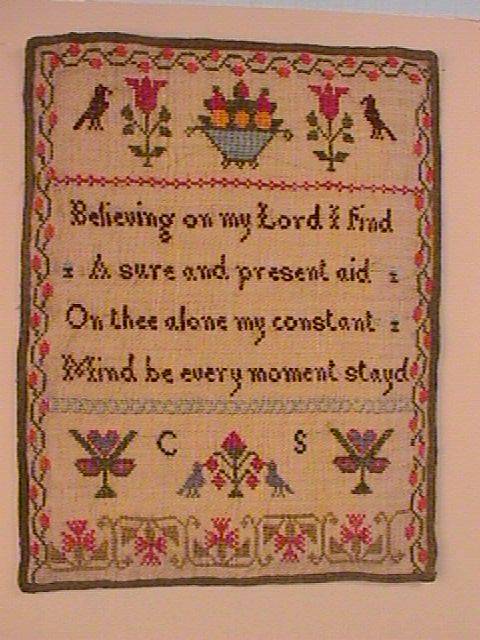 Believing on my Lord I find
A sure and present aid
On thee alone my constant
Mind be every moment stayd
C S